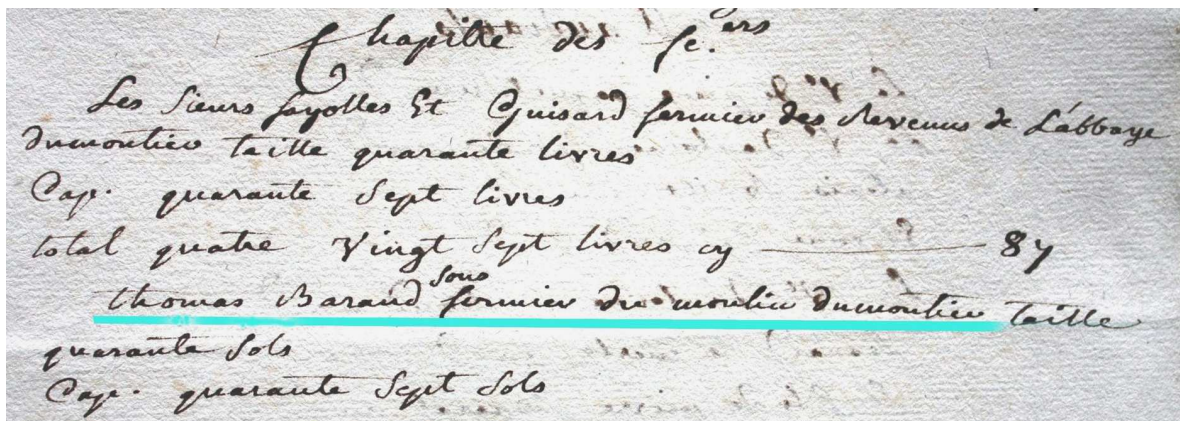 Chapitre des fe.ers
Les Sieurs fayolles Et Guisard fermier des Revenus de L'abbaye
dumoutier taille quarante livres
Cap. quarante Sept livres
total quatre Vingt Sept livres cy 87
thomas Barand sous fermier du moulin dumoutier taille
quarante Sols
Cap. quarante Sept Sols